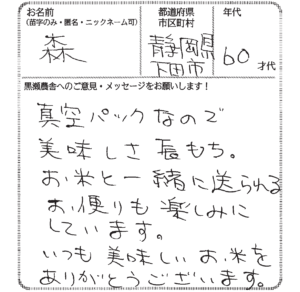 お名前
(苗字のみ・匿名・ニックネーム可)
森
都道府県
市区町村
静岡県
下田市
年代
60才代
黒瀬農舎へのご意見・メッセージをお願いします!
真空パックなので
美味しさ長もち。
お米と一緒に送られる
お便りも楽しみに
しています。
いつも美味しいお米を
ありがとうございます。